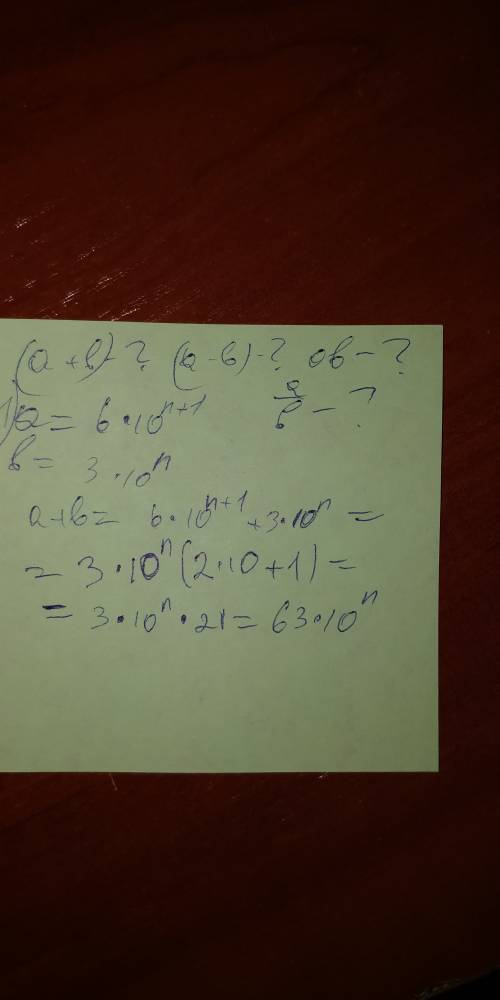 (a+b)-? (a-b)-? ab-?
1) a = 6·10ⁿ⁺¹ a/b - ?
b = 3·10ⁿ
a+b = 6·10ⁿ⁺¹+3·10ⁿ =
= 3·10ⁿ(2·10+1) =
= 3·10ⁿ·21 = 63·10ⁿ